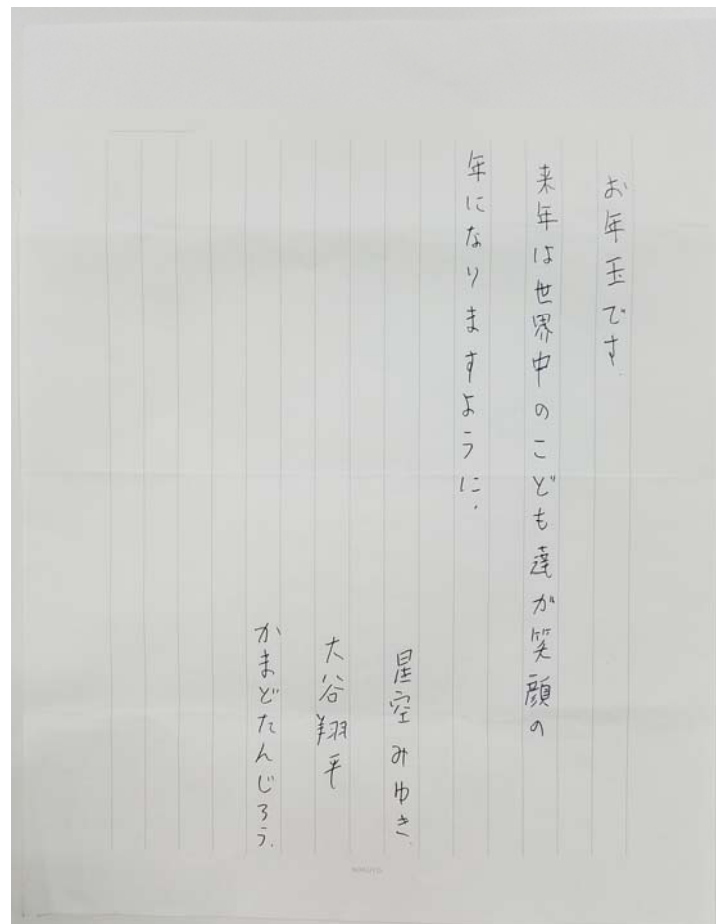 お年玉です
来年は世界中のこども達が笑顔の
年になりますように.
星空みゆき
大谷翔平
かまどたんじろう.
KOKUYO